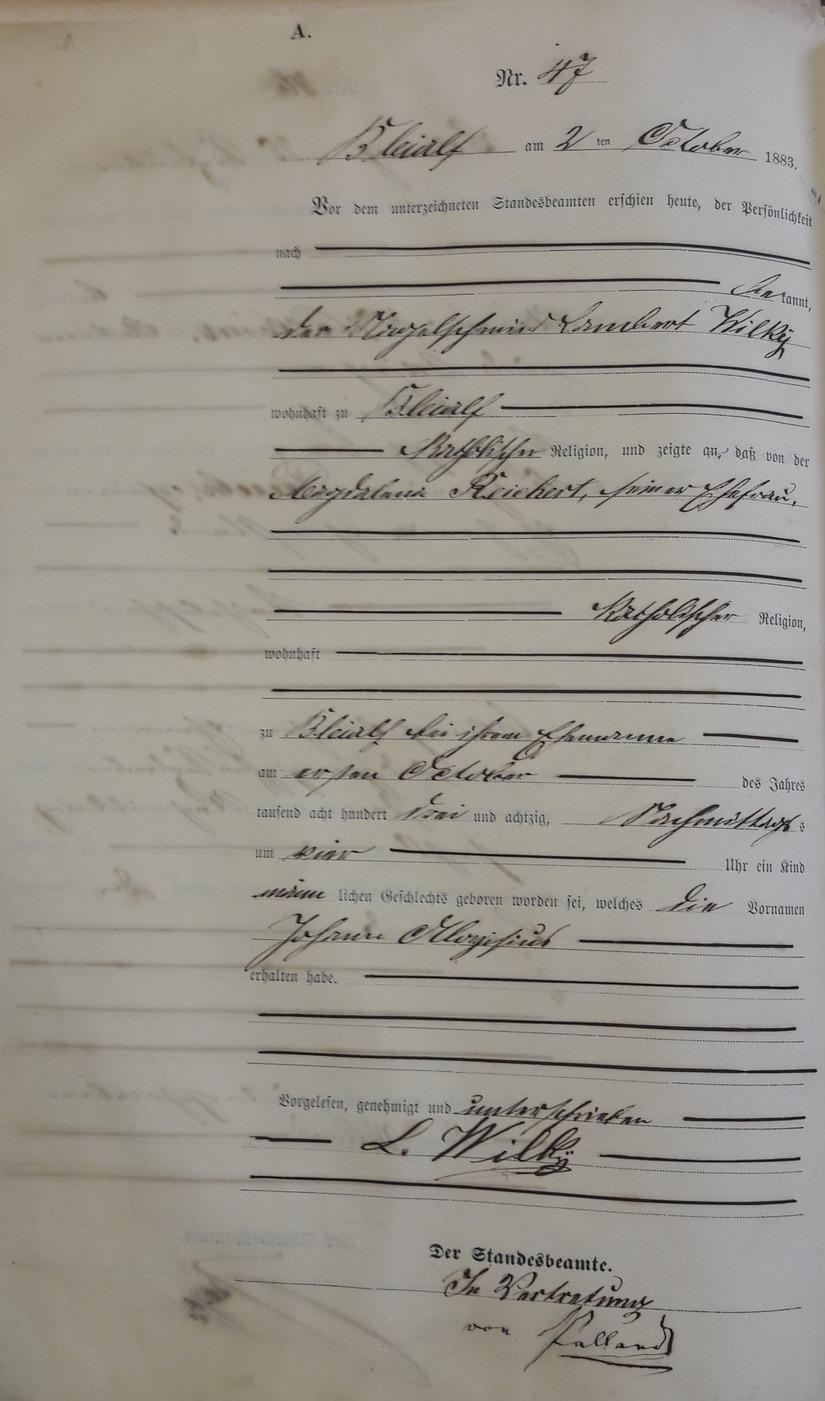 A.
Nr. 47
Bleialf am 2 ten October 1883.
Vor dem unterzeichneten Standesbeamten erschien heute, der Persönlichkeit
nach
bekannt,
der Nagelschmied Lambert Wilky
wohnhaft zu Bleialf
Katholischer Religion, und zeigte an, daß von der
Magdalena Reichert, seiner Ehefrau,
Katholischer Religion,
wohnhaft
zu Bleialf bei ihrem Ehemanne
am ersten October des Jahres
tausend acht hundert drei und achtzig, Nachmittags
um vier Uhr ein Kind
männlichen Geschlechts geboren worden sei, welches die Vornamen
Johann Aloysius
erhalten habe.
Vorgelesen, genehmigt und unterschrieben
L. Wilky
Der Standesbeamte.
In Vertretung
von Palland